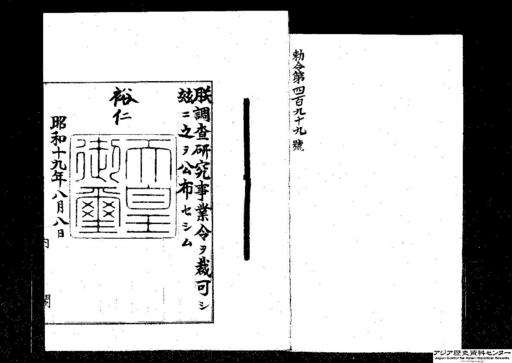 勅令第四百九十九號
朕調査研究事業令ヲ裁可シ
玆ニ之ヲ公布セシム
裕仁
天皇御璽
昭和十九年八月八日
内閣
アジア歴史資料センター
Japan Center for Asian Historical Records